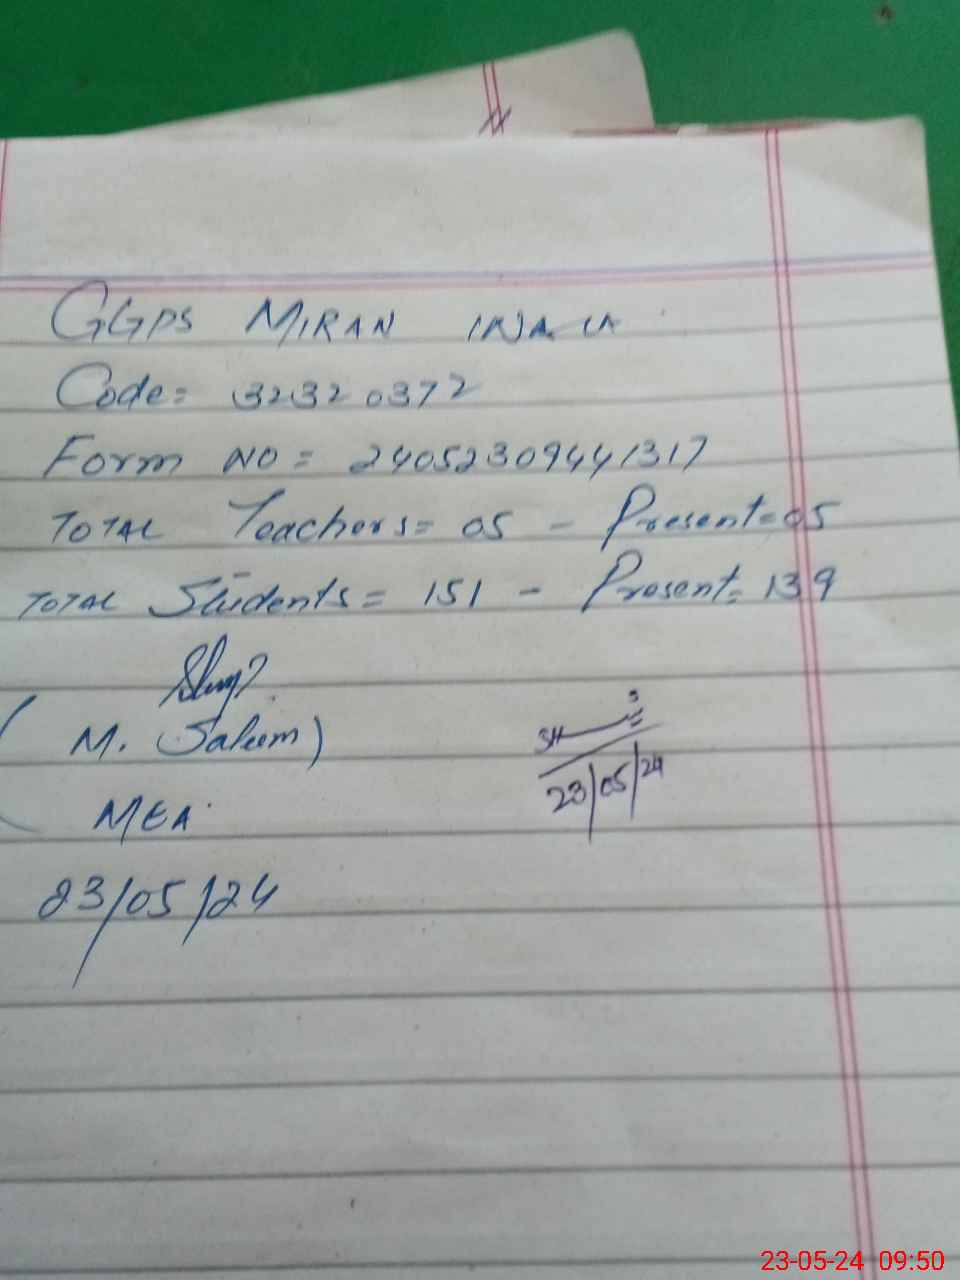 GGPS MIRAN
Code= 32320372
Form NO = 24052309441317
TOTAL Teachers= 05 - Present= 05
TOTAL Students= 151 - Present= 139
(M. Saleem)
MEA
23/05/24
23/05/24
23-05-24 09:50